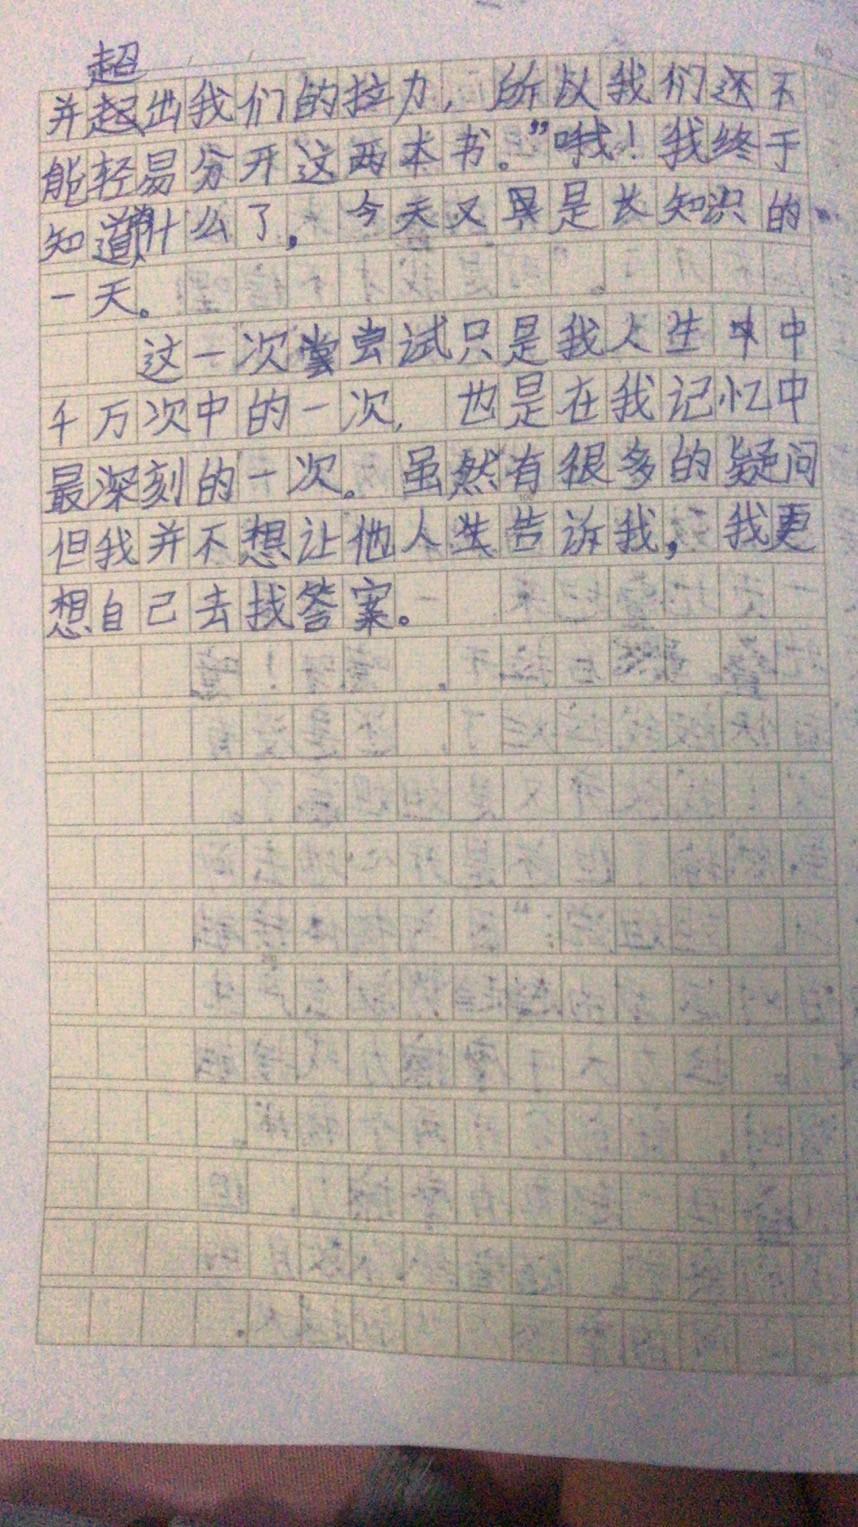 超
并起出我们的拉力，所以我们还不
能轻易分开这两本书。”哦！我终于
知道什么了，今天又是长知识的
一天。
这一次尝试只是我人生中
千万次中的一次，也是在我记忆中
最深刻的一次。虽然有很多的疑问
但我并不想让他人告诉我，我更
想自己去找答案。